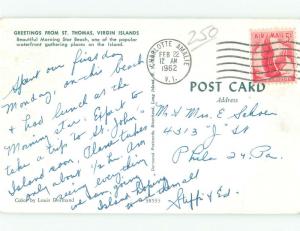 GREETINGS FROM ST. THOMAS, VIRGIN ISLANDS
Beautiful Morning Star Beach, one of the popular
waterfront gathering places on the Island.
250
CHARLOTTE AMALIE
FEB 22
12 AM
1962
V.I.
AIR MAIL
POST CARD
Address
Spent our first day
Monday, on this beach
& had lunch at the
Morning Star. Expect to
take a trip to St. John's
Island soon. Plane takes
only about 1/2 hr. Am
seeing everything
we can, going
Island hopping
Steffi & Ed.
Mr & Mrs. E.
4313 "J" St
Phila 24. Pa.
Color by Louis